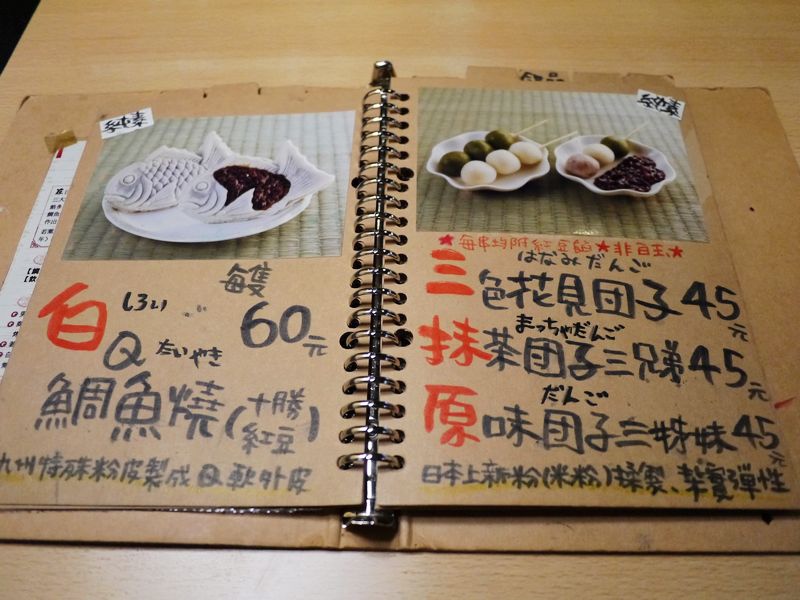 純素
每隻
60元
しろい
白Q
たいやき
鯛魚燒(十勝紅豆)
九州特殊粉皮製成Q軟外皮
★每串均附紅豆餡★非自主★
はなみだんご
三色花見団子45元
まっちゃだんご
抹茶団子三兄弟45元
だんご
原味団子三姊妹45元
日本上新粉(米粉)揉製、紮實彈性